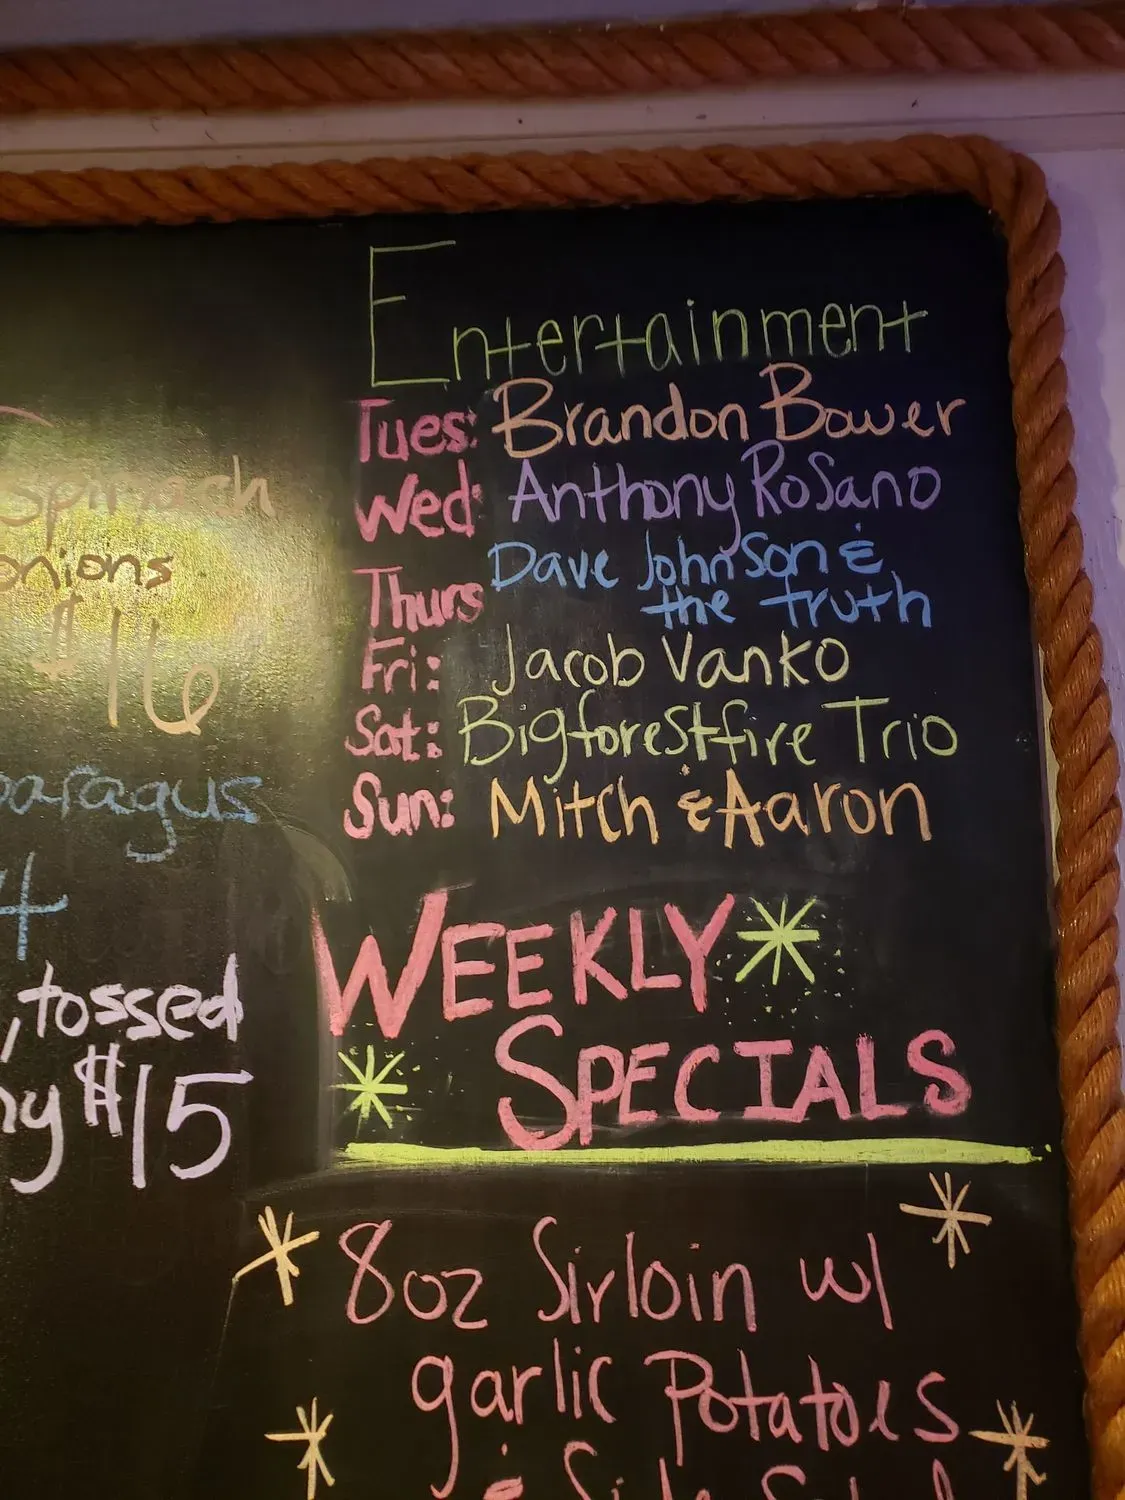 Entertainment
Tues: Brandon Bower
Wed: Anthony RoSano
Thurs Dave Johnson &
the truth
Fri: Jacob Vanko
Sat: Bigforestfire Trio
Sun: Mitch & Aaron
WEEKLY
SPECIALS
8oz Sirloin w/
garlic Potatoes
& Side
spinach
onions
$16
, tossed
$15